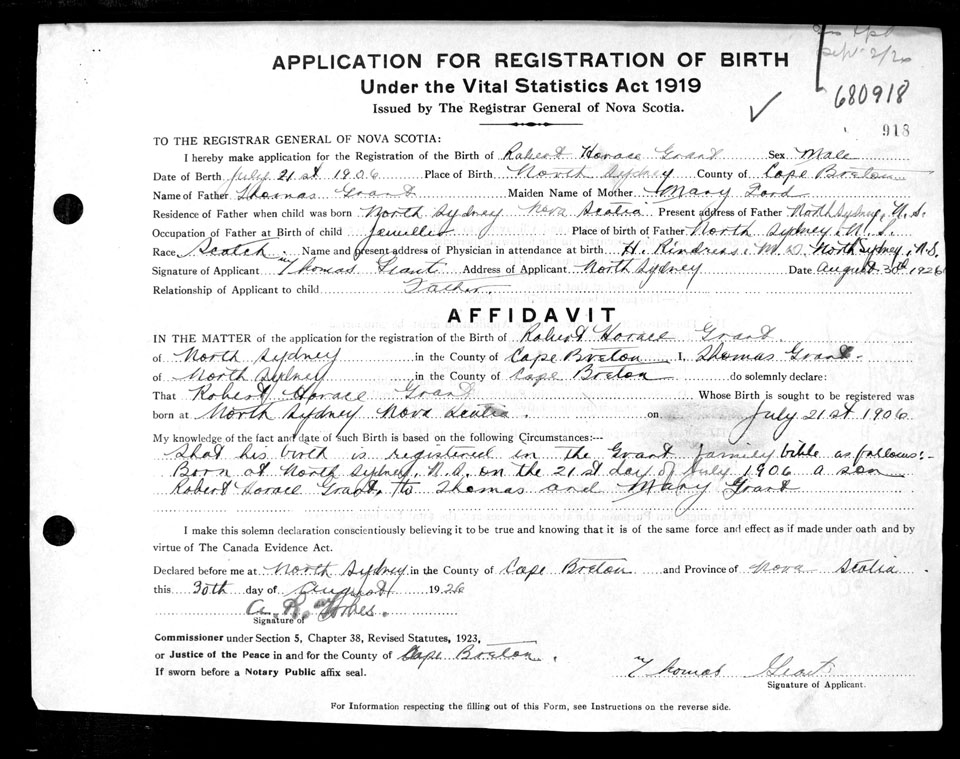 Sept 2/26
680918
918
APPLICATION FOR REGISTRATION OF BIRTH
Under the Vital Statistics Act 1919
Issued by The Registrar General of Nova Scotia.
TO THE REGISTRAR GENERAL OF NOVA SCOTIA:
I hereby make application for the Registration of the Birth of Robert Horace Grant Sex Male
Date of Berth July 21st 1906 Place of Birth North Sydney County of Cape Breton
Name of Father Thomas Grant Maiden Name of Mother Mary Ford
Residence of Father when child was born North Sydney Nova Scotia Present address of Father North Sydney, N.S.
Occupation of Father at Birth of child Jeweller Place of birth of Father North Sydney, N.S.
Race Scotch Name and present address of Physician in attendance at birth H. M.D. North Sydney, N.S.
Signature of Applicant Thomas Grant Address of Applicant North Sydney Date August 30th 1926
Relationship of Applicant to child Father
AFFIDAVIT
IN THE MATTER of the application for the registration of the Birth of Robert Horace Grant
of North Sydney in the County of Cape Breton I, Thomas Grant
of North Sydney in the County of Cape Breton do solemnly declare:
That Robert Horace Grant Whose Birth is sought to be registered was
born at North Sydney Nova Scotia. on July 21st 1906
My knowledge of the fact and date of such Birth is based on the following Circumstances:--
That his birth is registered in the Grant family bible as follows:-
Born at North Sydney, N.S. on the 21st day of July 1906 a son
Robert Horace Grant, to Thomas and Mary Grant
I make this solemn declaration conscientiously believing it to be true and knowing that it is of the same force and effect as if made under oath and by
virtue of The Canada Evidence Act.
Declared before me at North Sydney in the County of Cape Breton and Province of Nova Scotia
this 30th day of August 1926
A. R. Forbes.
Signature of
Commissioner under Section 5, Chapter 38, Revised Statutes, 1923,
or Justice of the Peace in and for the County of Cape Breton.
If sworn before a Notary Public affix seal.
Thomas Grant
Signature of Applicant.
For Information respecting the filling out of this Form, see Instructions on the reverse side.